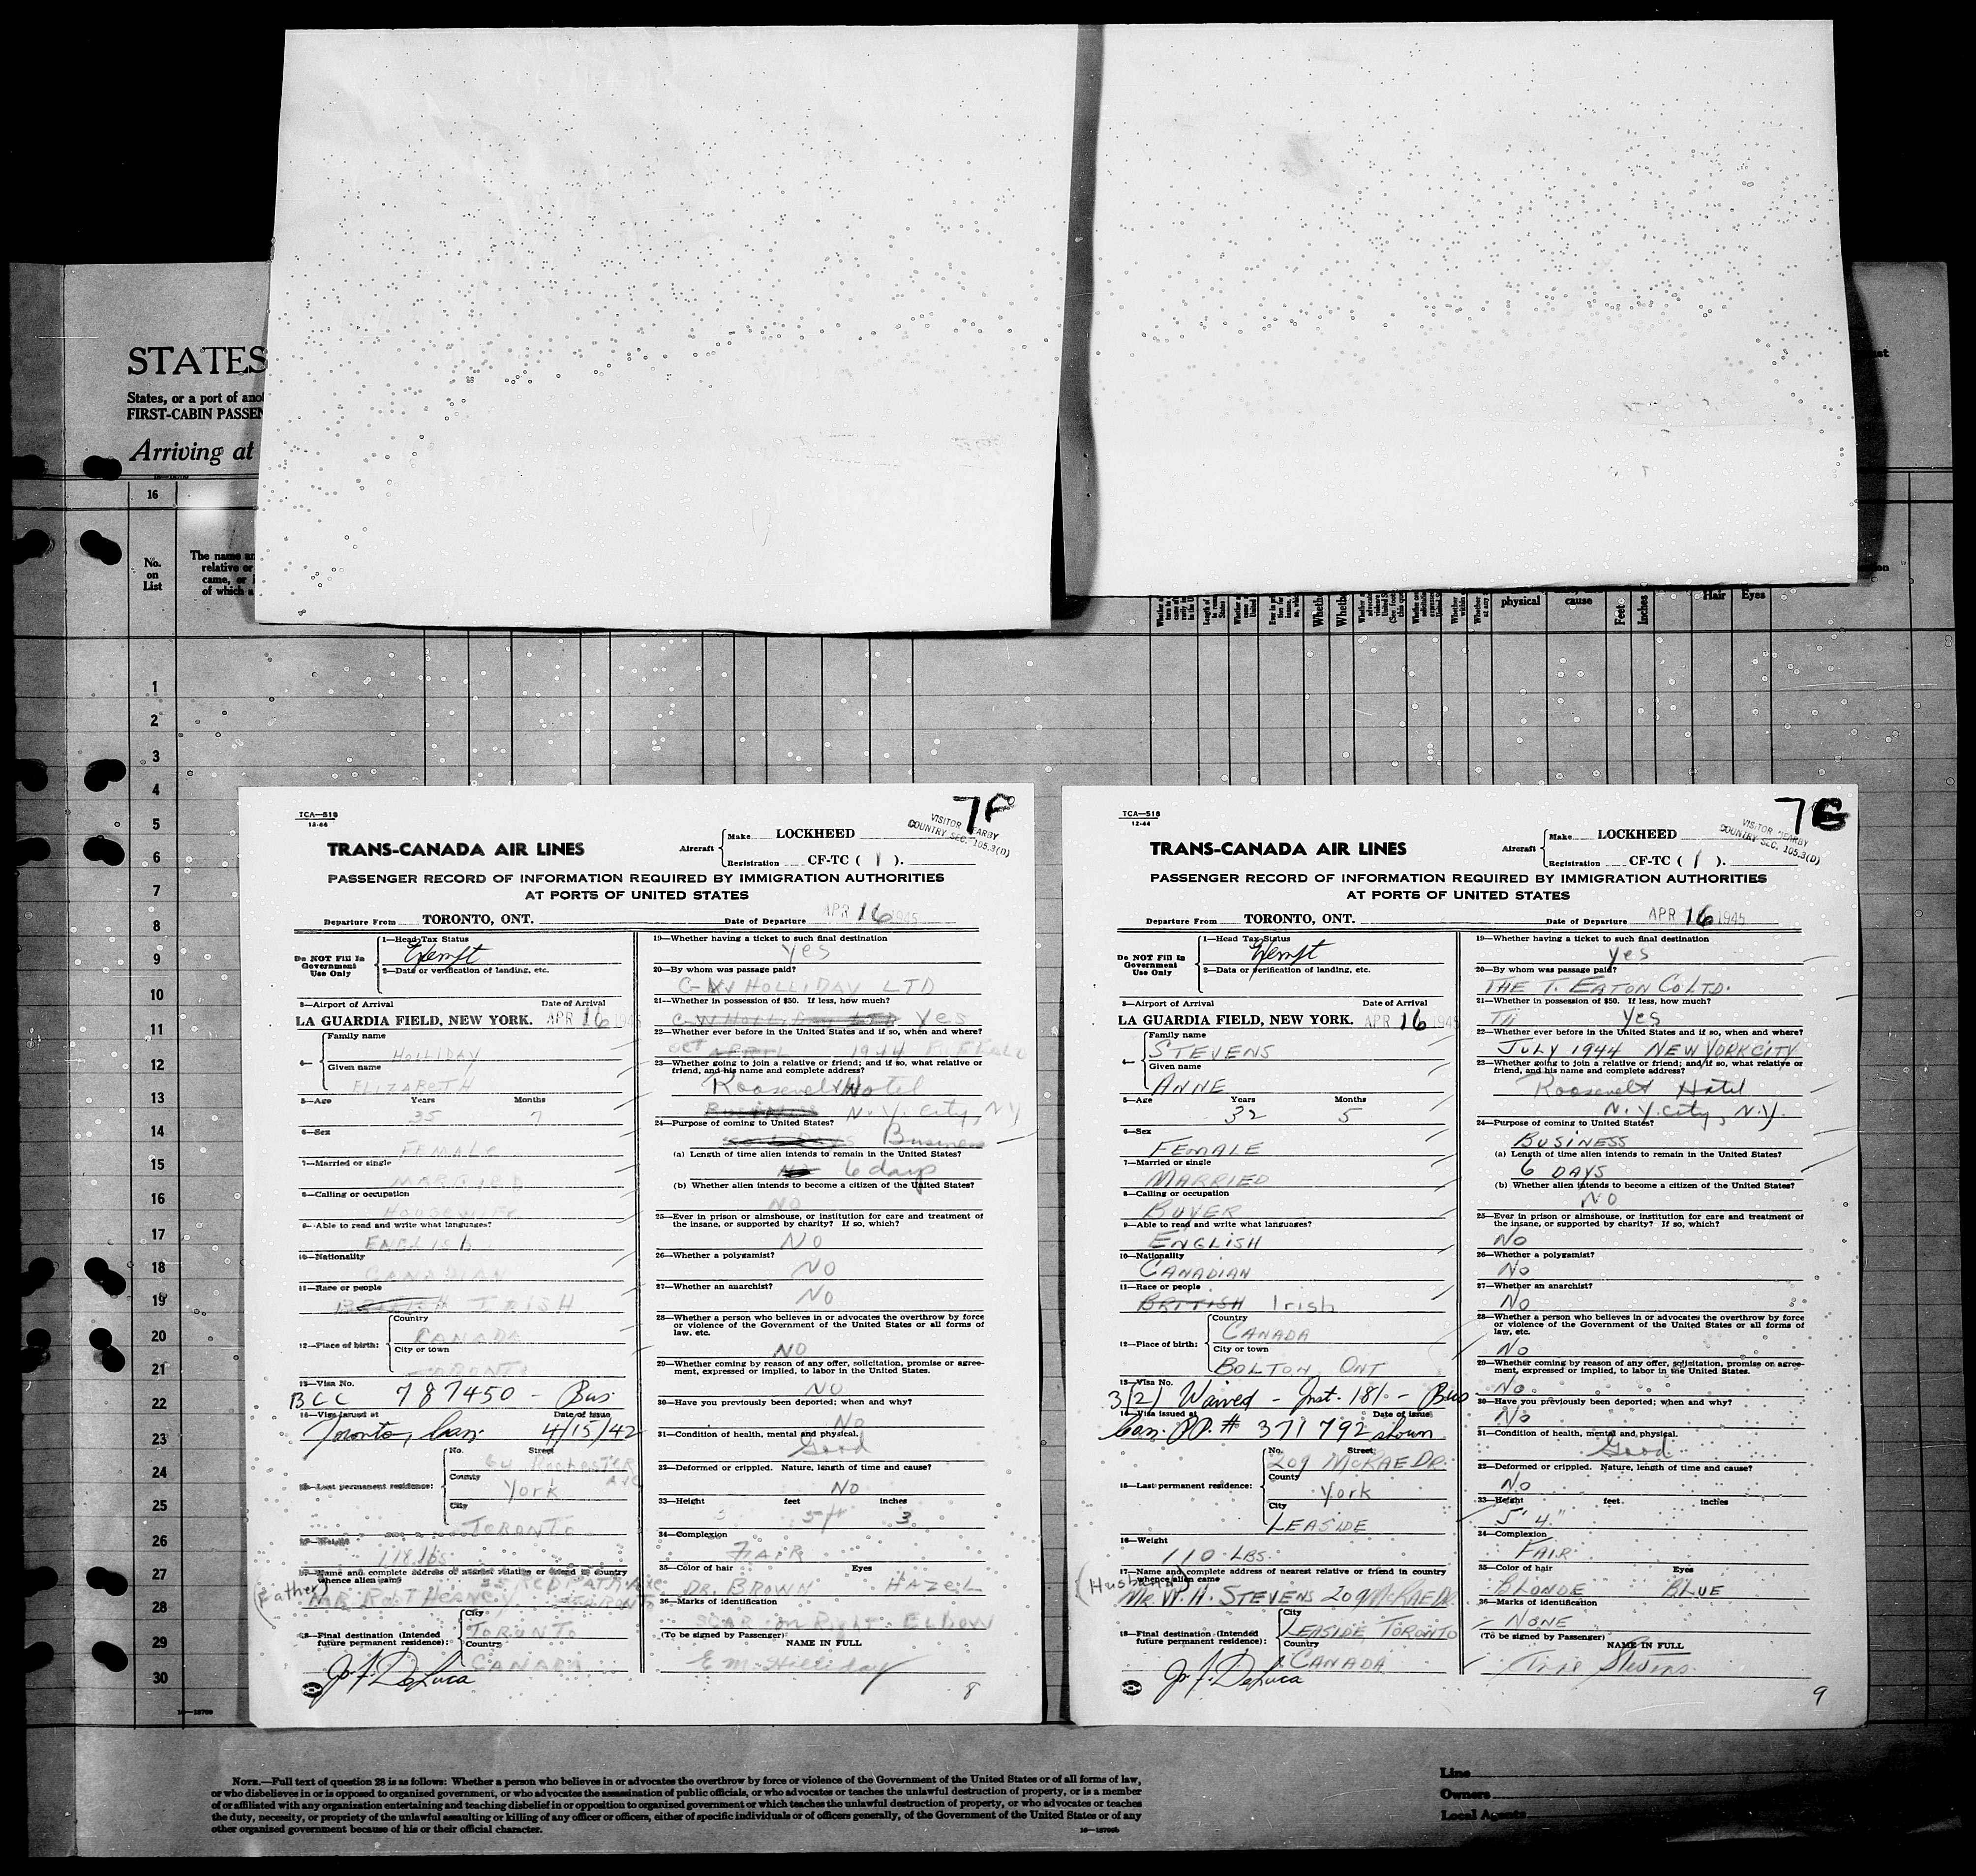 STATES
States, or a port of
FIRST-CABIN
Arriving at
16
No.
on
List
The name
relative or
came, or
of which a
physical
cause
Feet
Inches
Hair
Eyes
1
2
3
4
5
6
7
8
9
10
11
12
13
14
15
16
17
18
19
20
21
22
23
24
25
26
27
28
29
30
TCA—518
12-44
7F
VISITOR NEARBY
COUNTRY SEC. 105.3(D)
TRANS-CANADA AIR LINES
Aircraft
Make LOCKHEED
Registration CF-TC ( 1 ).
PASSENGER RECORD OF INFORMATION REQUIRED BY IMMIGRATION AUTHORITIES
AT PORTS OF UNITED STATES
Departure From TORONTO, ONT. Date of Departure APR 16 1945
Do NOT Fill In
Government
Use Only
1—Head Tax Status
Exempt
2—Date or verification of landing, etc.
3—Airport of Arrival Date of Arrival
LA GUARDIA FIELD, NEW YORK. APR 16 1945
4— Family name
HOLLIDAY
Given name
ELIZABETH
5—Age Years Months
35 7
6—Sex
FEMALE
7—Married or single
MARRIED
8—Calling or occupation
HOUSEWIFE
9—Able to read and write what languages?
ENGLISH
10—Nationality
CANADIAN
11—Race or people
BRITISH IRISH
12—Place of birth:
Country
CANADA
City or town
TORONTO
13—Visa No.
BCC 787450 - Bus.
14—Visa issued at Date of issue
Toronto, Can. 4/15/42
15—Last permanent residence:
No. Street
64 ROCHESTER AVE
County
York
City
TORONTO
16—Weight
118 lbs
17—Name and complete address of nearest relative or friend in country
whence alien came
(Father)
18—Final destination (Intended
future permanent residence):
City
TORONTO
Country
CANADA
Jo. J. DeLuca
19—Whether having a ticket to such final destination
Yes
20—By whom was passage paid?
G-W HOLLIDAY LTD
21—Whether in possession of $50. If less, how much?
Yes
22—Whether ever before in the United States and if so, when and where?
OCT APRIL 1944 BUFFALO
23—Whether going to join a relative or friend; and if so, what relative or
friend, and his name and complete address?
Roosevelt Hotel
N.Y. City, NY
24—Purpose of coming to United States?
Business
(a) Length of time alien intends to remain in the United States?
No 6 days
(b) Whether alien intends to become a citizen of the United States?
NO
25—Ever in prison or almshouse, or institution for care and treatment of
the insane, or supported by charity? If so, which?
NO
26—Whether a polygamist?
NO
27—Whether an anarchist?
NO
28—Whether a person who believes in or advocates the overthrow by force
or violence of the Government of the United States or all forms of
law, etc.
NO
29—Whether coming by reason of any offer, solicitation, promise or agree-
ment, expressed or implied, to labor in the United States.
NO
30—Have you previously been deported; when and why?
No
31—Condition of health, mental and physical.
Good
32—Deformed or crippled. Nature, length of time and cause?
No
33—Height feet inches
5ft 3
34—Complexion
FAIR
35—Color of hair Eyes
DR. BROWN HAZEL
36—Marks of identification
SCAR on Right ELBOW
(To be signed by Passenger)
NAME IN FULL
E M Holliday
8
TCA—518
12-44
7G
VISITOR NEARBY
COUNTRY SEC. 105.3(D)
TRANS-CANADA AIR LINES
Aircraft
Make LOCKHEED
Registration CF-TC ( 1 ).
PASSENGER RECORD OF INFORMATION REQUIRED BY IMMIGRATION AUTHORITIES
AT PORTS OF UNITED STATES
Departure From TORONTO, ONT. Date of Departure APR 16 1945
Do NOT Fill In
Government
Use Only
1—Head Tax Status
Exempt
2—Date or verification of landing, etc.
3—Airport of Arrival Date of Arrival
LA GUARDIA FIELD, NEW YORK. APR 16 1945
4— Family name
STEVENS
Given name
ANNE
5—Age Years Months
32 5
6—Sex
FEMALE
7—Married or single
MARRIED
8—Calling or occupation
BUYER
9—Able to read and write what languages?
ENGLISH
10—Nationality
CANADIAN
11—Race or people
BRITISH Irish
12—Place of birth:
Country
CANADA
City or town
BOLTON ONT
13—Visa No.
3(2) Waived - Inst. 181 - Bus
14—Visa issued at Date of issue
Can. PP. # 371792 shown
15—Last permanent residence:
No. Street
209 McRAE DR.
County
York
City
LEASIDE
16—Weight
110 LBS.
17—Name and complete address of nearest relative or friend in country
whence alien came
(Husband)
MR. W. H. STEVENS 209 McRAE DR.
18—Final destination (Intended
future permanent residence):
City
LEASIDE, TORONTO
Country
CANADA
Jo. J. DeLuca
19—Whether having a ticket to such final destination
yes
20—By whom was passage paid?
THE T. EATON CO LTD.
21—Whether in possession of $50. If less, how much?
yes
22—Whether ever before in the United States and if so, when and where?
JULY 1944 NEW YORK CITY
23—Whether going to join a relative or friend; and if so, what relative or
friend, and his name and complete address?
Roosevelt Hotel
N.Y. City, N.Y.
24—Purpose of coming to United States?
BUSINESS
(a) Length of time alien intends to remain in the United States?
6 DAYS
(b) Whether alien intends to become a citizen of the United States?
NO
25—Ever in prison or almshouse, or institution for care and treatment of
the insane, or supported by charity? If so, which?
No
26—Whether a polygamist?
No
27—Whether an anarchist?
No
28—Whether a person who believes in or advocates the overthrow by force
or violence of the Government of the United States or all forms of
law, etc.
No
29—Whether coming by reason of any offer, solicitation, promise or agree-
ment, expressed or implied, to labor in the United States.
No
30—Have you previously been deported; when and why?
No
31—Condition of health, mental and physical.
Good
32—Deformed or crippled. Nature, length of time and cause?
No
33—Height feet inches
5' 4"
34—Complexion
FAIR
35—Color of hair Eyes
BLONDE BLUE
36—Marks of identification
NONE
(To be signed by Passenger)
NAME IN FULL
Stevens
9
NOTE.—Full text of question 28 is as follows: Whether a person who believes in or advocates the overthrow by force or violence of the Government of the United States or of all forms of law,
or who disbelieves in or is opposed to organized government, or who advocates the assassination of public officials, or who advocates or teaches the unlawful destruction of property, or is a member
of or affiliated with any organization entertaining and teaching disbelief in or opposition to organized government or which teaches the unlawful destruction of property, or who advocates or teaches
the duty, necessity, or propriety of the unlawful assaulting or killing of any officer or officers, either of specific individuals or of officers generally, of the Government of the United States or of any
other organized government because of his or their official character.
Line
Owners
Local Agents